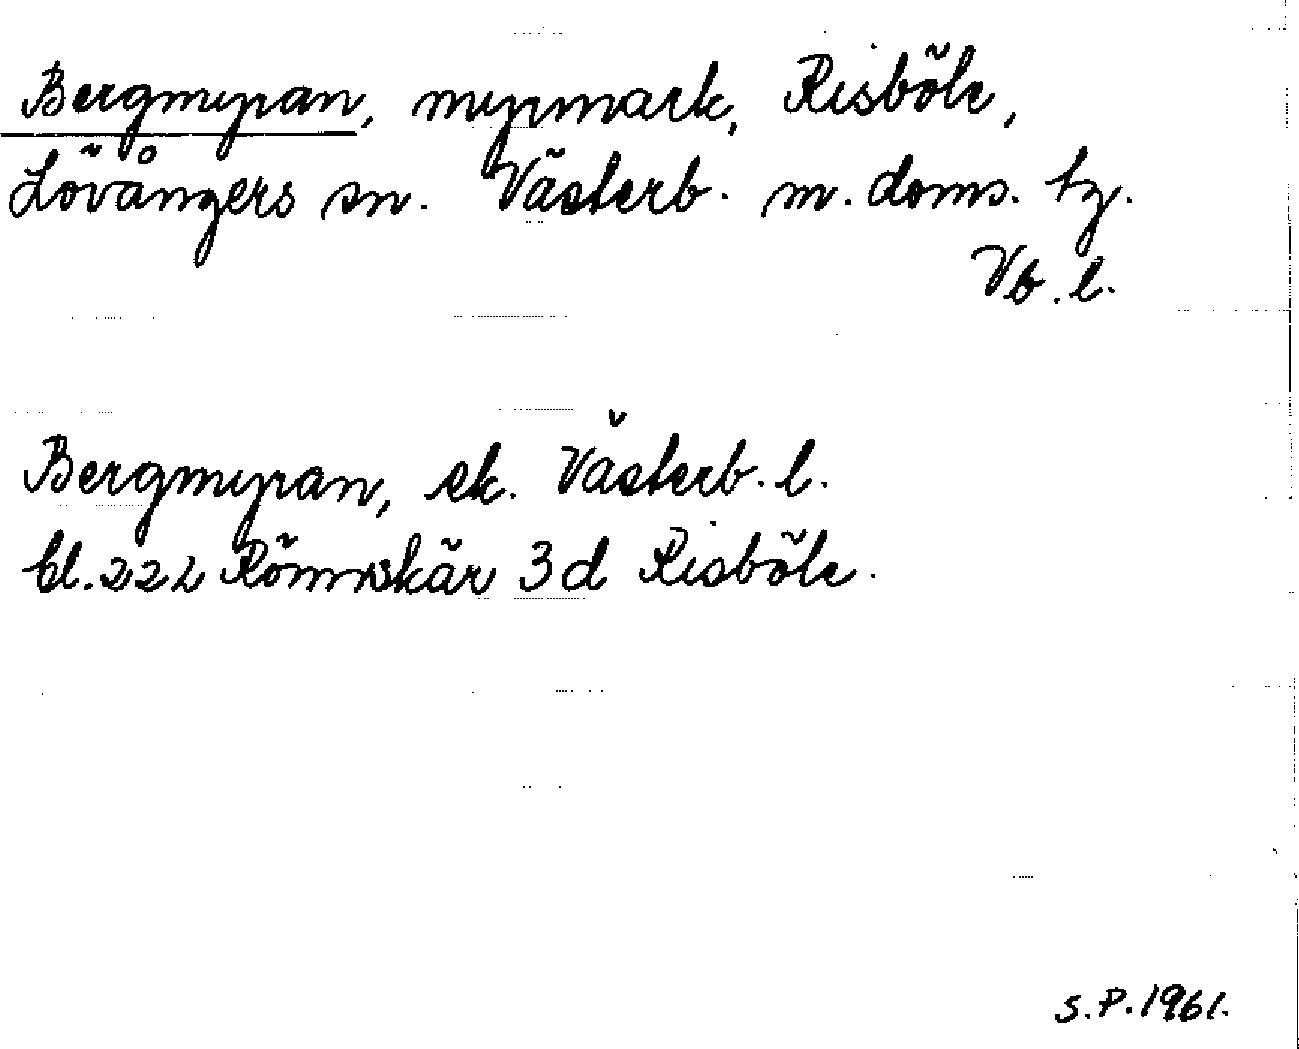 Bergmyran, myrmark, Risböle,
Lövångers sn. Västerb. m. doms. tg.
Vb. l.
Bergmyran, ek. Västerb. l.
bl. 222 Rönnskär 3 d Risböle.
S.P. 1961.